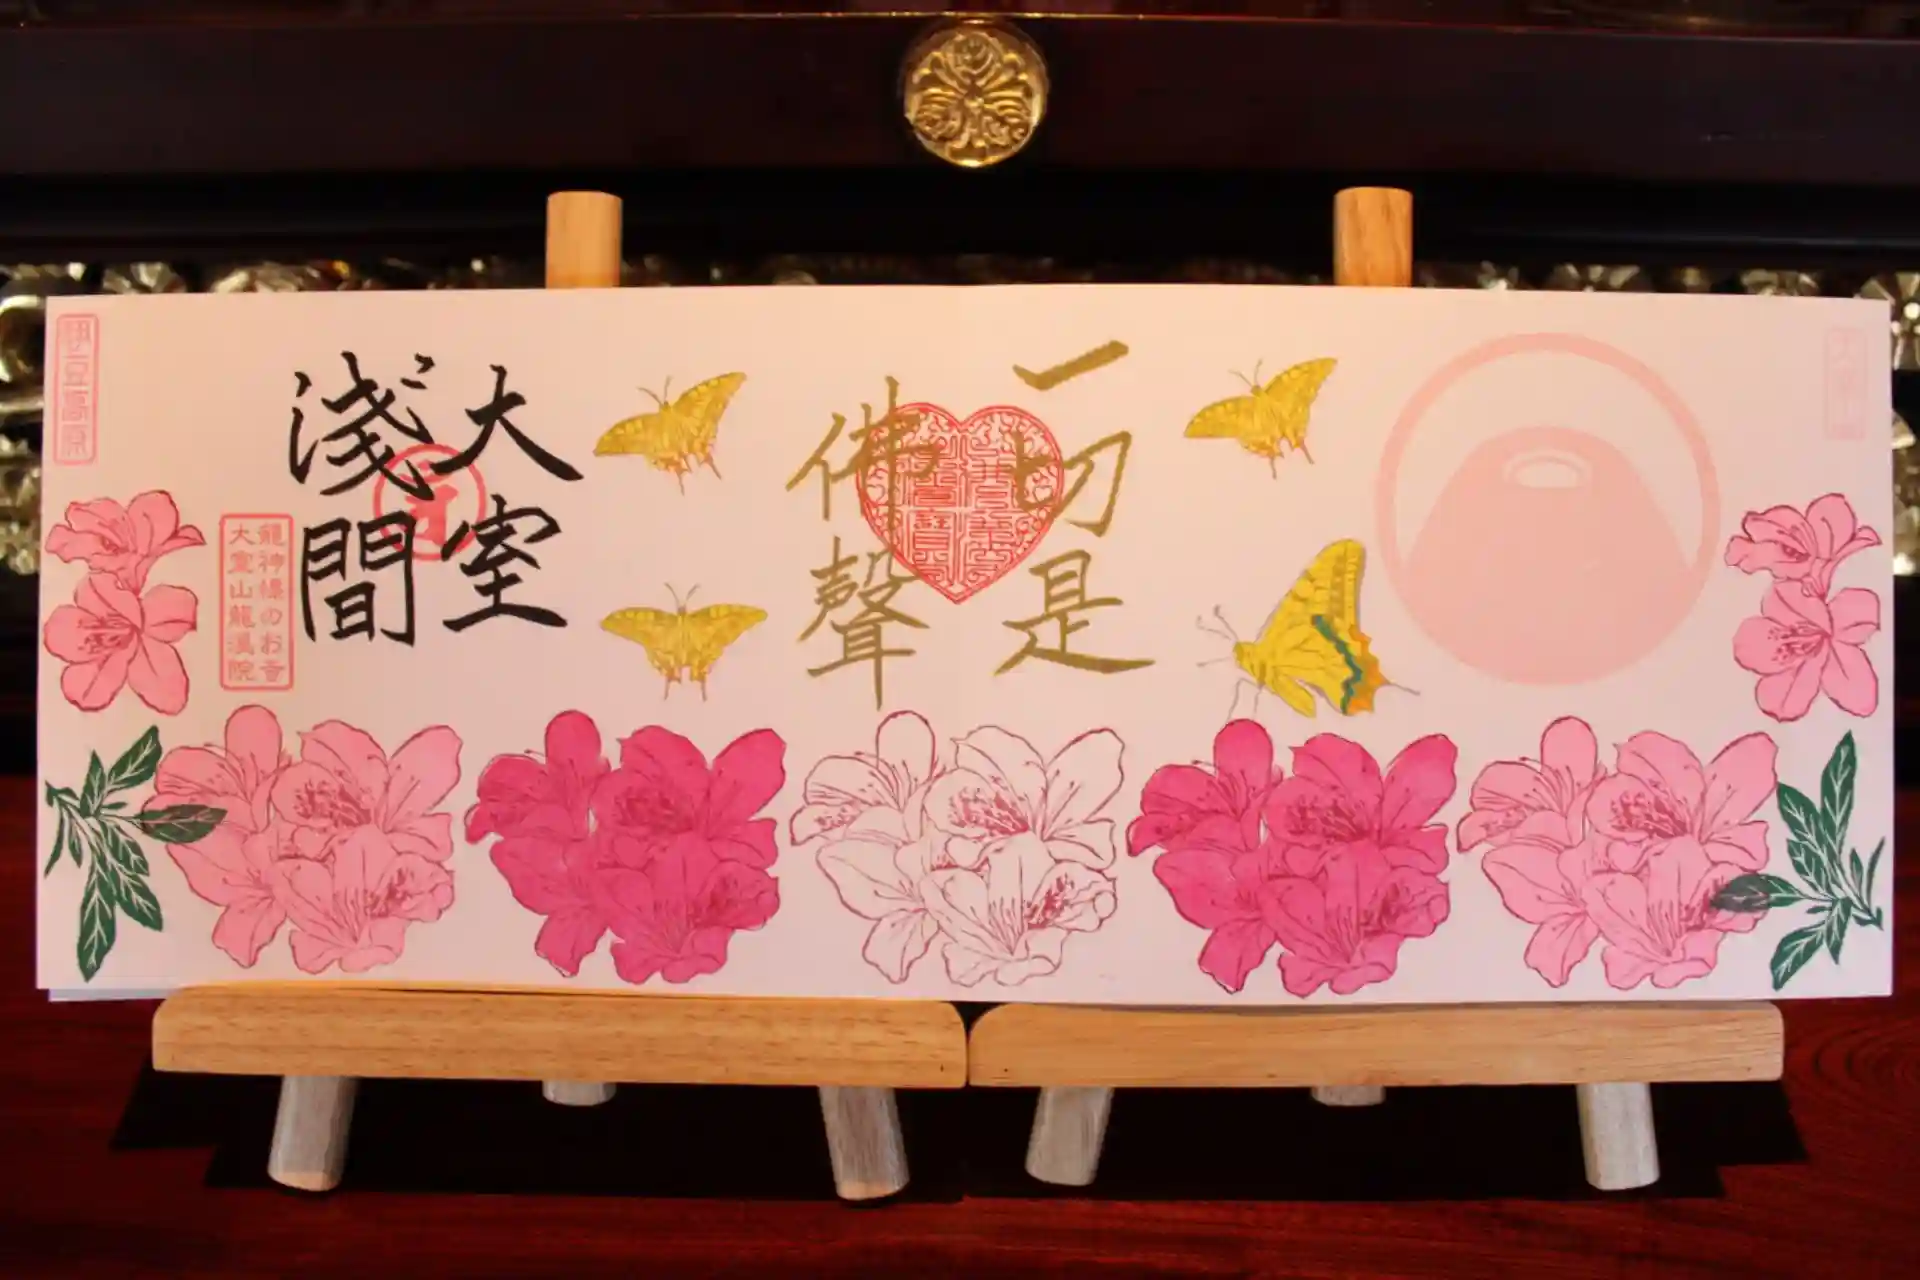 一切是
佛聲
大室
淺間
龍神様のお寺
大室山龍渓院
伊豆高原